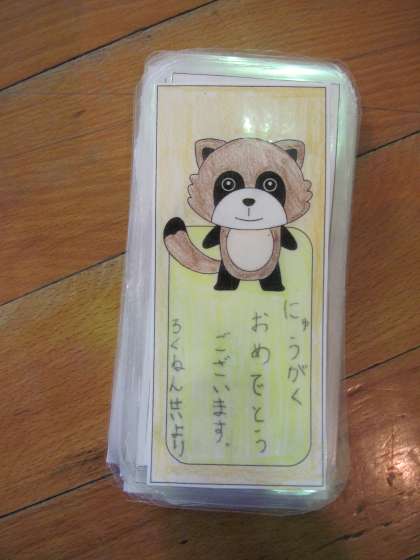 にゅうがく
おめでとう
ございます。
ろくねんせいより